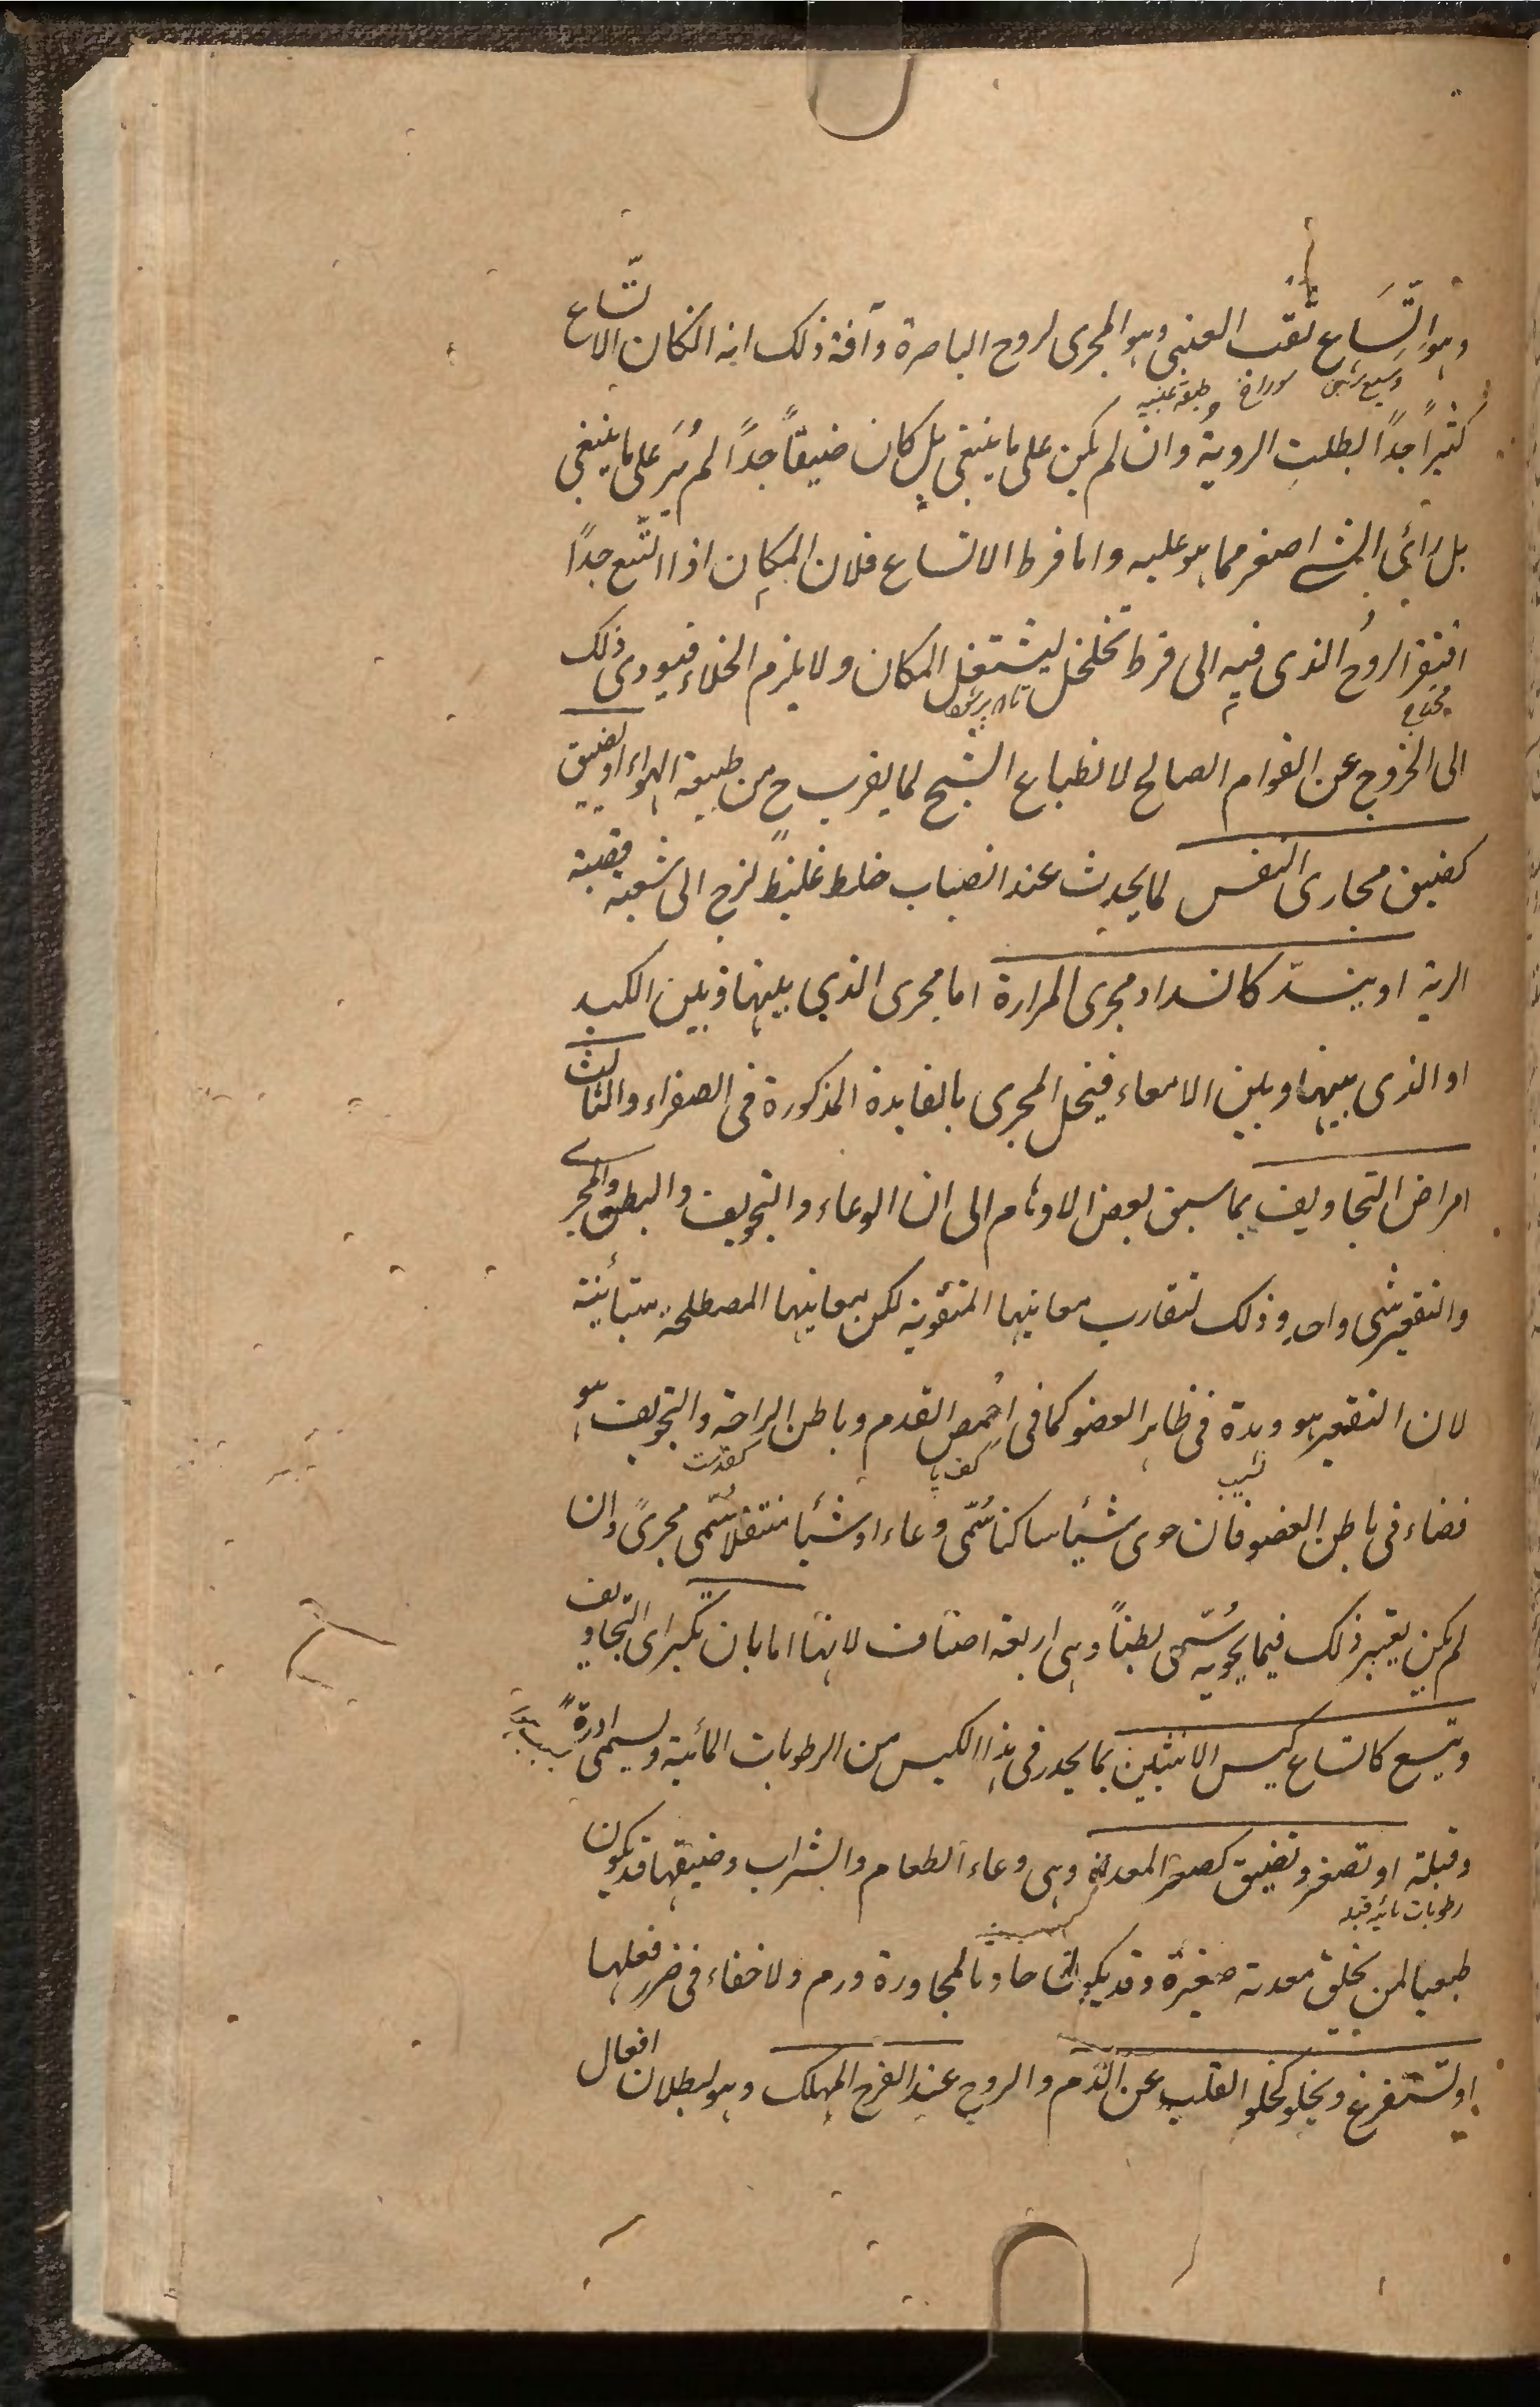 وهو اتّساع ثقب العنبى وهو المجرى لروح الباصرة وآفة ذلك انه ان كان الاتّساع
وسیع شدن سوراخ طبقه عنبیه
كثيراً جداً بطلت الروية وان لم يكن على ما ينبغى بل كان ضيقاً جداً لم يُرَ على ما ينبغى
بل رأى الشى اصغر مما هو عليه واما فرط الاتساع فلان المكان اذا اتّسع جداً
افتقر الروحُ الذى فيه الى فرط تخلخل ليشتغل المكان ولا يلزم الخلاء فيودى ذلك
محتاج تا پر شود
الى الخروج عن القوام الصالح لانطباع الشبح لما يقرب ح من طبيعة الهواء او تضيق
كضيق مجارى النفس لما يحدث عند انصباب خلط غليظ لزج الى شعبة قصبة
الرية او ينسدّ كانسداد مجرى المرارة اما مجرى الذي بينها وبين الكبد
او الذى بينها وبين الامعاء فيخل المجرى بالفايدة المذكورة فى الصفراء والثالث
امراض التجاويف بما سبق بعض الاوهام الى ان الوعاء والتجويف والبطن والمجرى
والتقعير شى واحد وذلك لتقارب معانيها اللغوية لكن معانيها المصطلحة متبائنة
لان التقعير هو وهدة فى ظاهر العضو كما فى اخمص القدم وباطن الراحة والتجويف هو
نشیب كف پا كف دست
فضاء فى باطن العضو فان حوى شيئا ساكنا سُمّى وعاء او شيئا منتقلا سُمّى مجرىً وان
لم يكن يعتبر ذلك فيما يحويه سُمّى بطناً وهى اربعة اصناف لانها اما بان تكبر اى التجاويف
وتتسع كاتساع كيس الانثيين بما يحدر فى هذا الكيس من الرطوبات المائية ويسمى ادرة
وقيلة او تصغر وتضيق كصغر المعدة وهى وعاء الطعام والشراب وضيقها قد يكون
رطوبات مائیه قیله
طبعيا لمن يخلق معدته صغيرة وقد يكون حادثا لمجاورة ورم ولا خفاء فى ضرر فعلها
او تستفرغ ويخلو كخلو القلب عن الدّم والروح عند الفرح المهلك وهو لبطلان افعال